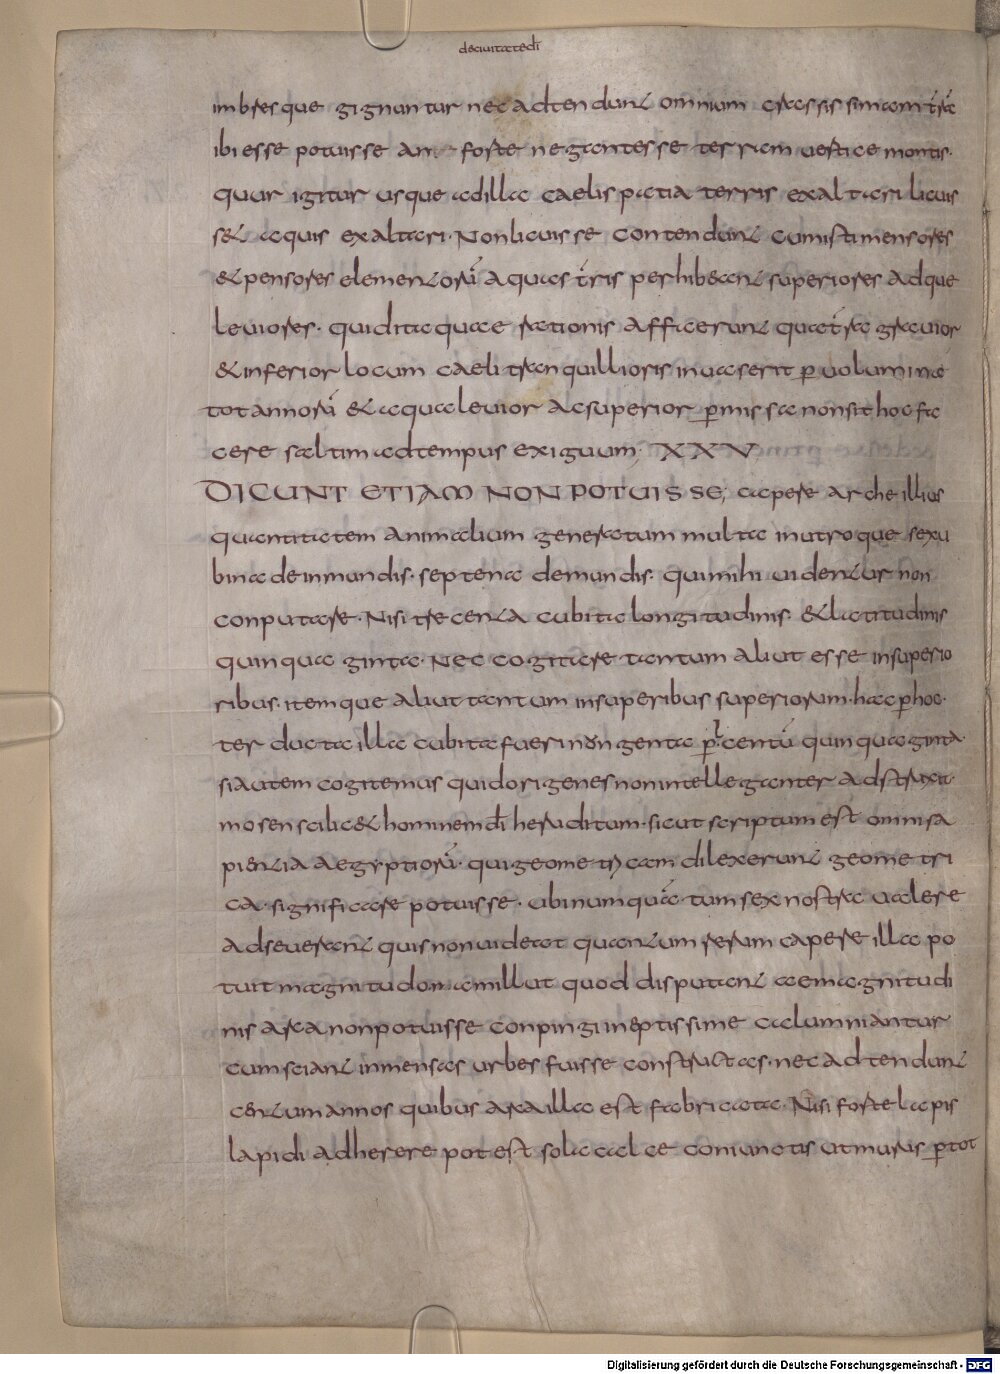 deciuitatedi
imbresque gignuntur nec adtendunt omnium crassissimam terra
ibi esse potuisse an forte negantes se terram uertice montis.
quur igitur usque ad illa caeli spatia terris exaltari licuis
set aquis exaltari. Non licuisse contendunt cum isti mensores
& pensores elementorū aquas tris perhibeant superiores adque
leuiores. quid itaque rationis afferunt qua tra grauior
& inferior locum caeli tranquillioris inuaserit p uolumina
tot annorū & aqua leuior ac superior pmissa non sit hoc fa
cere saltim ad tempus exiguum. XXV
DICUNT ETIAM NON POTUISSE, capere arche illius
quantitatem animalium genera tam multa in utroque sexu
bina de inmundis. septena de mundis. qui mihi uidentur non
conputare. Nisi trecenta cubita longitudinis. & latitudinis
quinquaginta. Nec cogitare tantum aliut esse in superio
ribus. itemque aliut tantum in superibus superiorum. hac p hoc.
ter ducta illa cubita fueri nongenta p centū quinquaginta.
si autem cogitemus quid origenes non intellegenter adstruxit.
mosen scilic& hominem dī heruditum. sicut scriptum est omni sa
pientia aegyptiorū. qui geometricam dilexerunt geometri
ca. significare potuisse. ubi num quā. tum sex nostra ualere
adseuerant quis non uideat quantum rerum capere illa po
tuit magnitudo nam illut quod disputant tantae magnitudi
nis arca non potuisse conpingi ineptissime calumniantur
cum sciant inmensas urbes fuisse constructas. nec adtendunt
centum annos quibus arca illa est fabricata. Nisi forte lapis
lapidi adherere potest sola calce coniunctis ut murus p tot
Digitalisierung gefördert durch die Deutsche Forschungsgemeinschaft - DFG